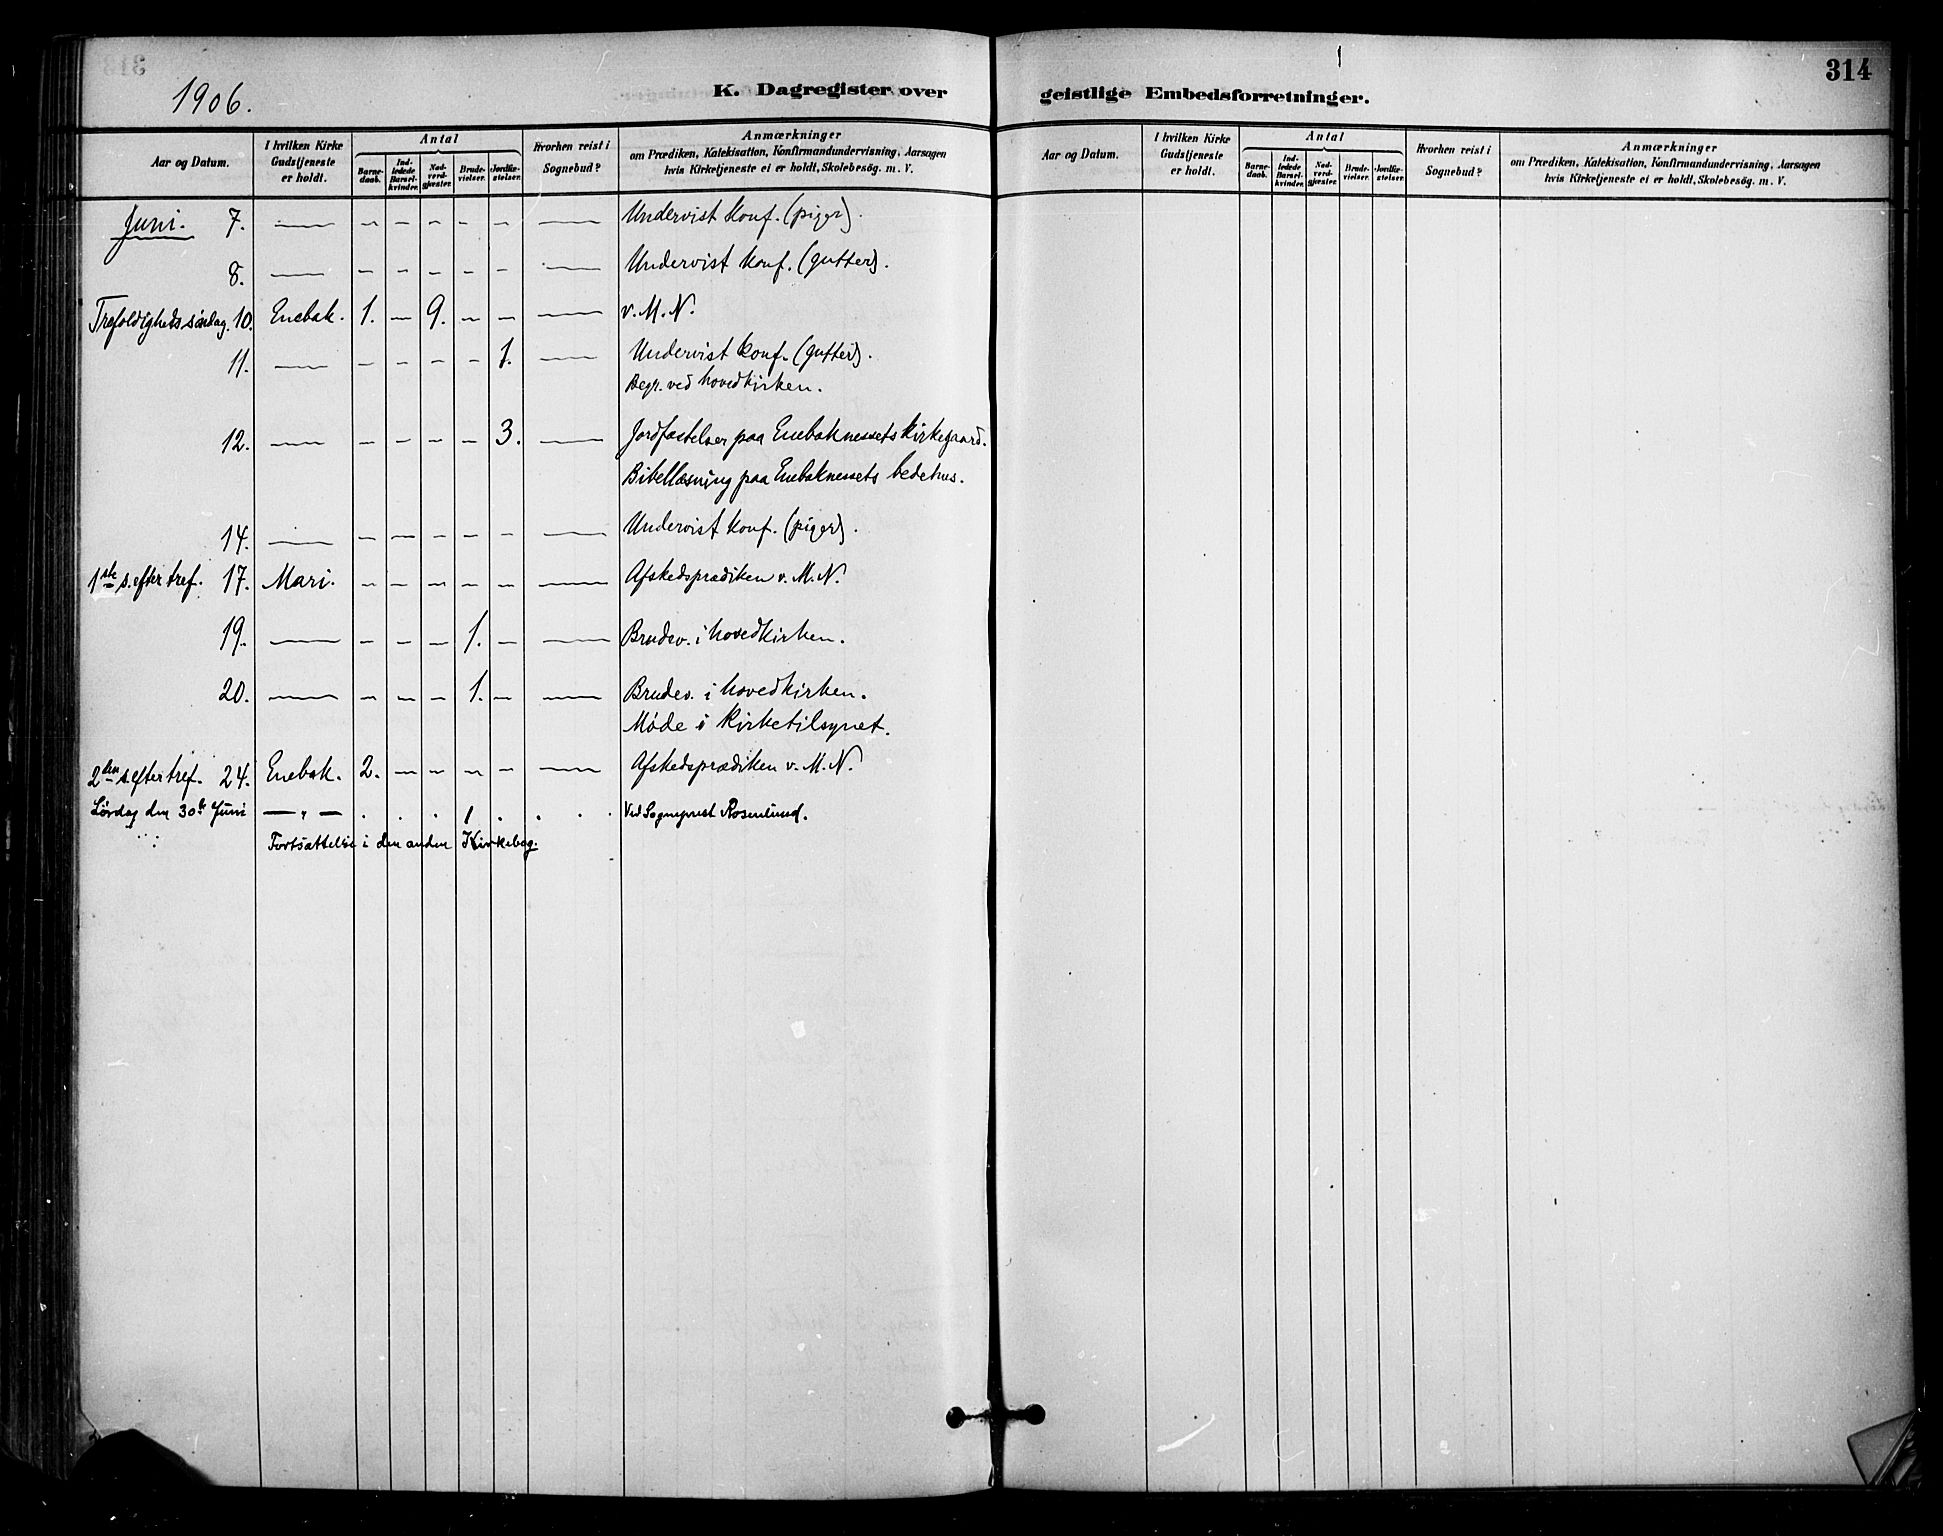 1906.
K. Dagregister over
geistlige Embedsforretninger.
314
Aar og Datum.
I hvilken Kirke Gudstjeneste er holdt.
Antal
Barne-daab.
Ind-ledede Barsel-kvinder.
Nad-verd-gjæster.
Brude-vielser.
Jordfæ-stelser.
Hvorhen reist i Sognebud?
Anmærkninger
om Prædiken, Katekisation, Konfirmandundervisning, Aarsagen
hvis Kirketjeneste ei er holdt, Skolebesøg. m. V.
Juni. 7. — – – – – – — Undervist konf. (piger).
8. — – – – – – — Undervist konf. (gutter).
Trefoldighetssöndag. 10. Enebak. 1. – 9. – – — v. M. N.
11. — – – – – 1. — Undervist konf. (gutter).
Begr. ved hovedkirken.
12. — – – – – 3. — Jordfæstelser paa Enebaknessets kirkegaard.
Bibellæsning paa Enebaknessets bedehus.
14. — – – – – – — Undervist konf. (piger).
1ste s. efter tref. 17. Mari. – – – – – — Afskedsprædiken v. M. N.
19. — – – – 1. – — Brudev. i hovedkirken.
20. — – – – 1. – — Brudev. i hovedkirken.
Møde i kirketilsynet.
2den s. efter tref. 24. Enebak. 2. – – – – — Afskedsprædiken v. M. N.
Lørdag den 30te Juni — " — . . . 1 . . . . Ved Sogneprest Rosenlund.
Fortsættelse i den anden Kirkebog.
Aar og Datum.
I hvilken Kirke Gudstjeneste er holdt.
Antal
Barne-daab.
Ind-ledede Barsel-kvinder.
Nad-verd-gjæster.
Brude-vielser.
Jordfæ-stelser.
Hvorhen reist i Sognebud?
Anmærkninger
om Prædiken, Katekisation, Konfirmandundervisning, Aarsagen
hvis Kirketjeneste ei er holdt, Skolebesøg. m. V.